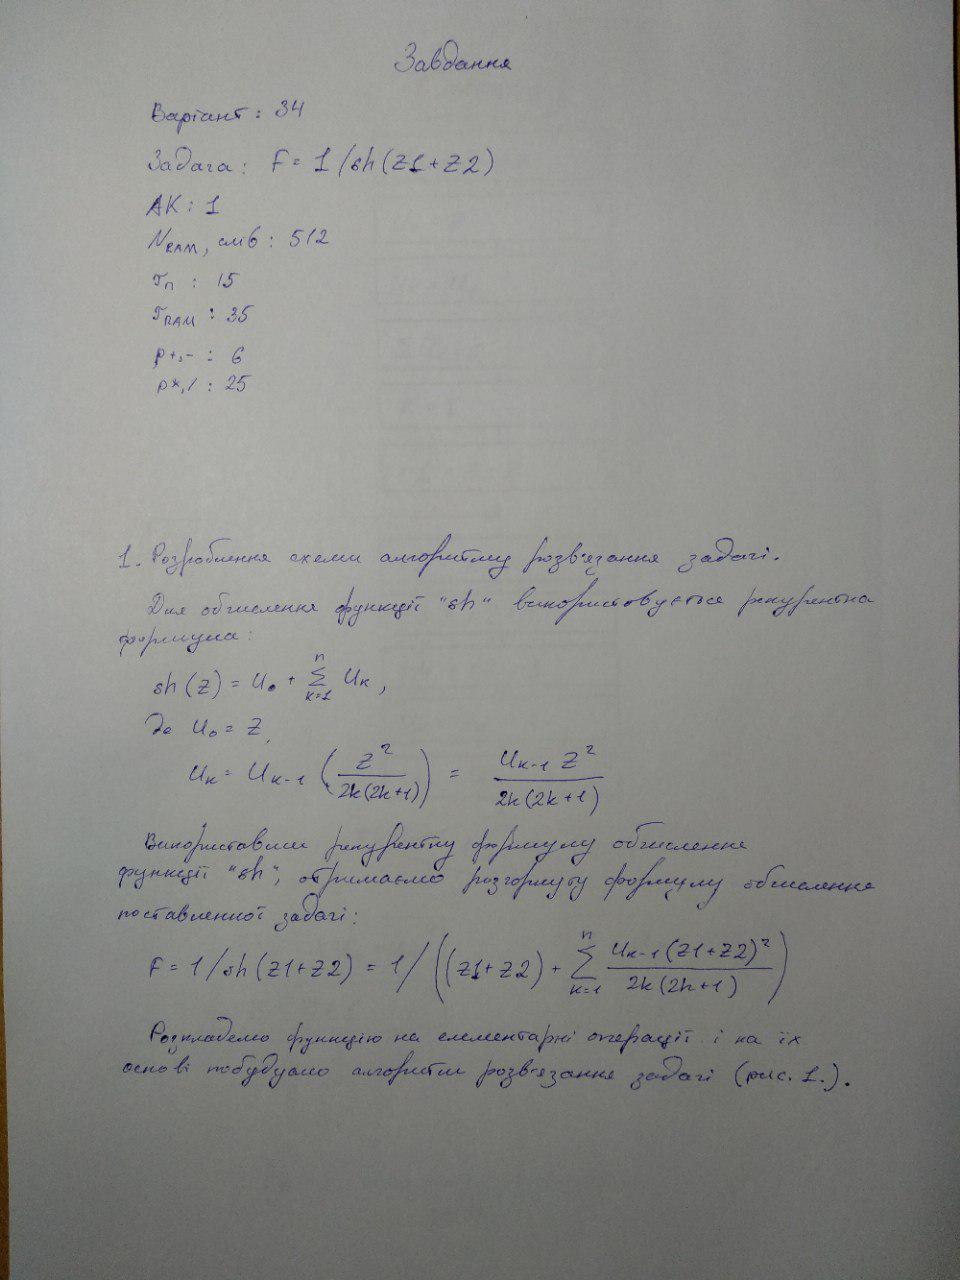 Завдання
Варіант: 34
Задача: F = 1/sh(Z1+Z2)
АК: 1
N_RAM, слів: 512
τ_П : 15
τ_RAM : 35
p+,- : 6
p*,/ : 25
1. Розроблення схеми алгоритму розв'язання задачі.
Для обчислення функції "sh" використовується рекурентна
формула:
sh(Z) = U₀ + Σ_{k=1}^{n} U_k,
де U₀ = Z,
U_k = U_{k-1} (Z² / 2k(2k+1)) = U_{k-1} Z² / 2k(2k+1)
Використавши рекурентну формулу обчислення
функції "sh", отримаємо розгорнуту формулу обчислення
поставленної задачі:
F = 1/sh(Z1+Z2) = 1/((Z1+Z2) + Σ_{k=1}^{n} U_{k-1}(Z1+Z2)² / 2k(2k+1))
Розкладемо функцію на елементарні операції і на їх
основі побудуємо алгоритм розв'язання задачі (рис. 1.).